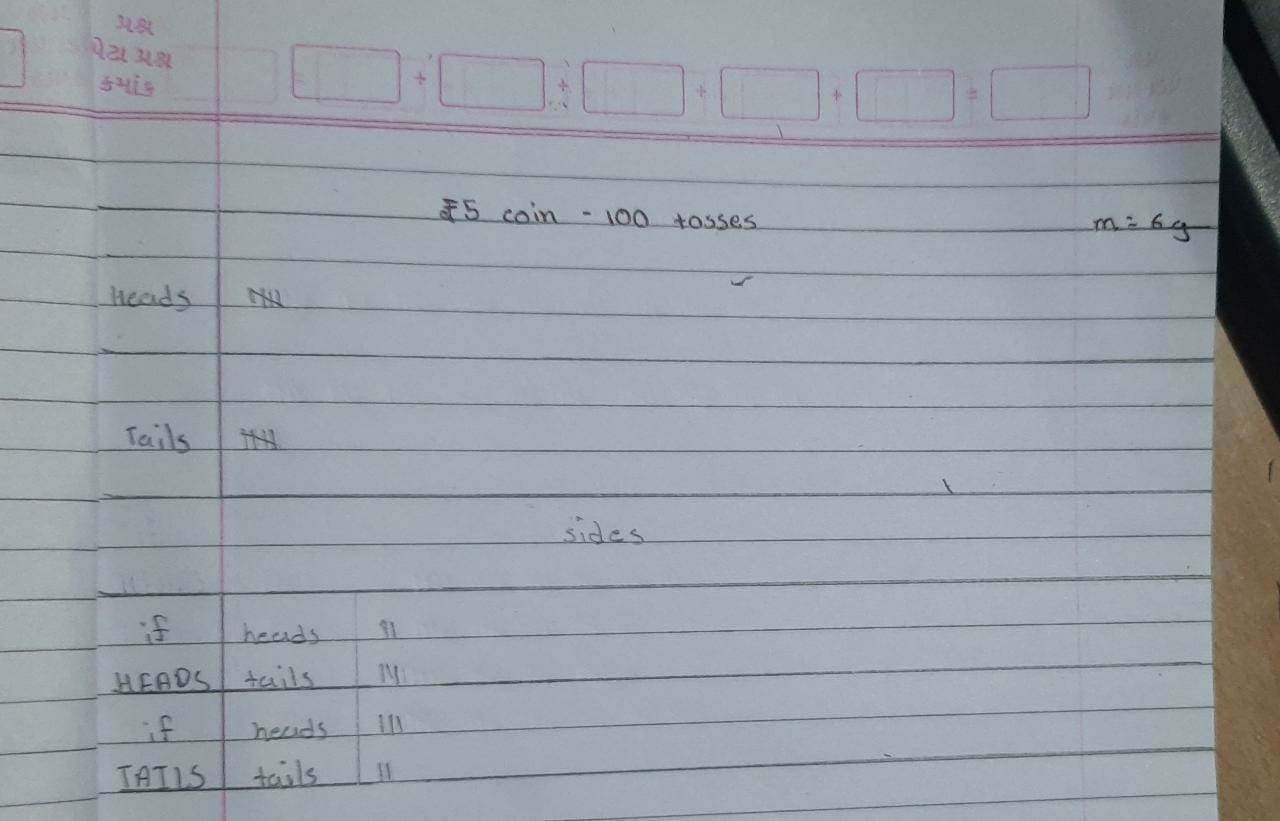 પ્રશ્ન
પેટા પ્રશ્ન
ક્રમાંક
+ + + + =
₹5 coin - 100 tosses m = 6g
Heads 卌
Tails 卌
sides
if heads ||
HEADS tails |||
if heads |||
TAILS tails ||